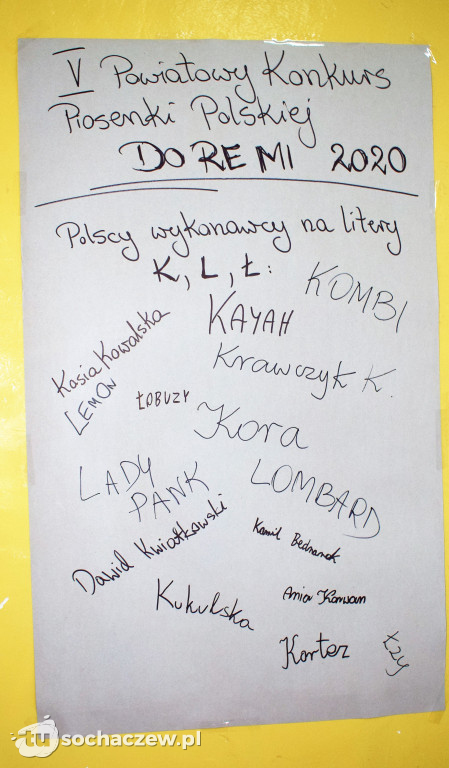 V Powiatowy Konkurs
Piosenki Polskiej
DO RE MI 2020
Polscy wykonawcy na litery
K, L, Ł:
KOMBI
KAYAH
Kasia Kowalska
LEMON
Krawczyk K.
ŁOBUZY
Kora
LADY
PANK
LOMBARD
Dawid Kwiatkowski
Kamil Bednarek
Kukulska
Ania Karwan
Kortez
ŁZY
tu sochaczew.pl